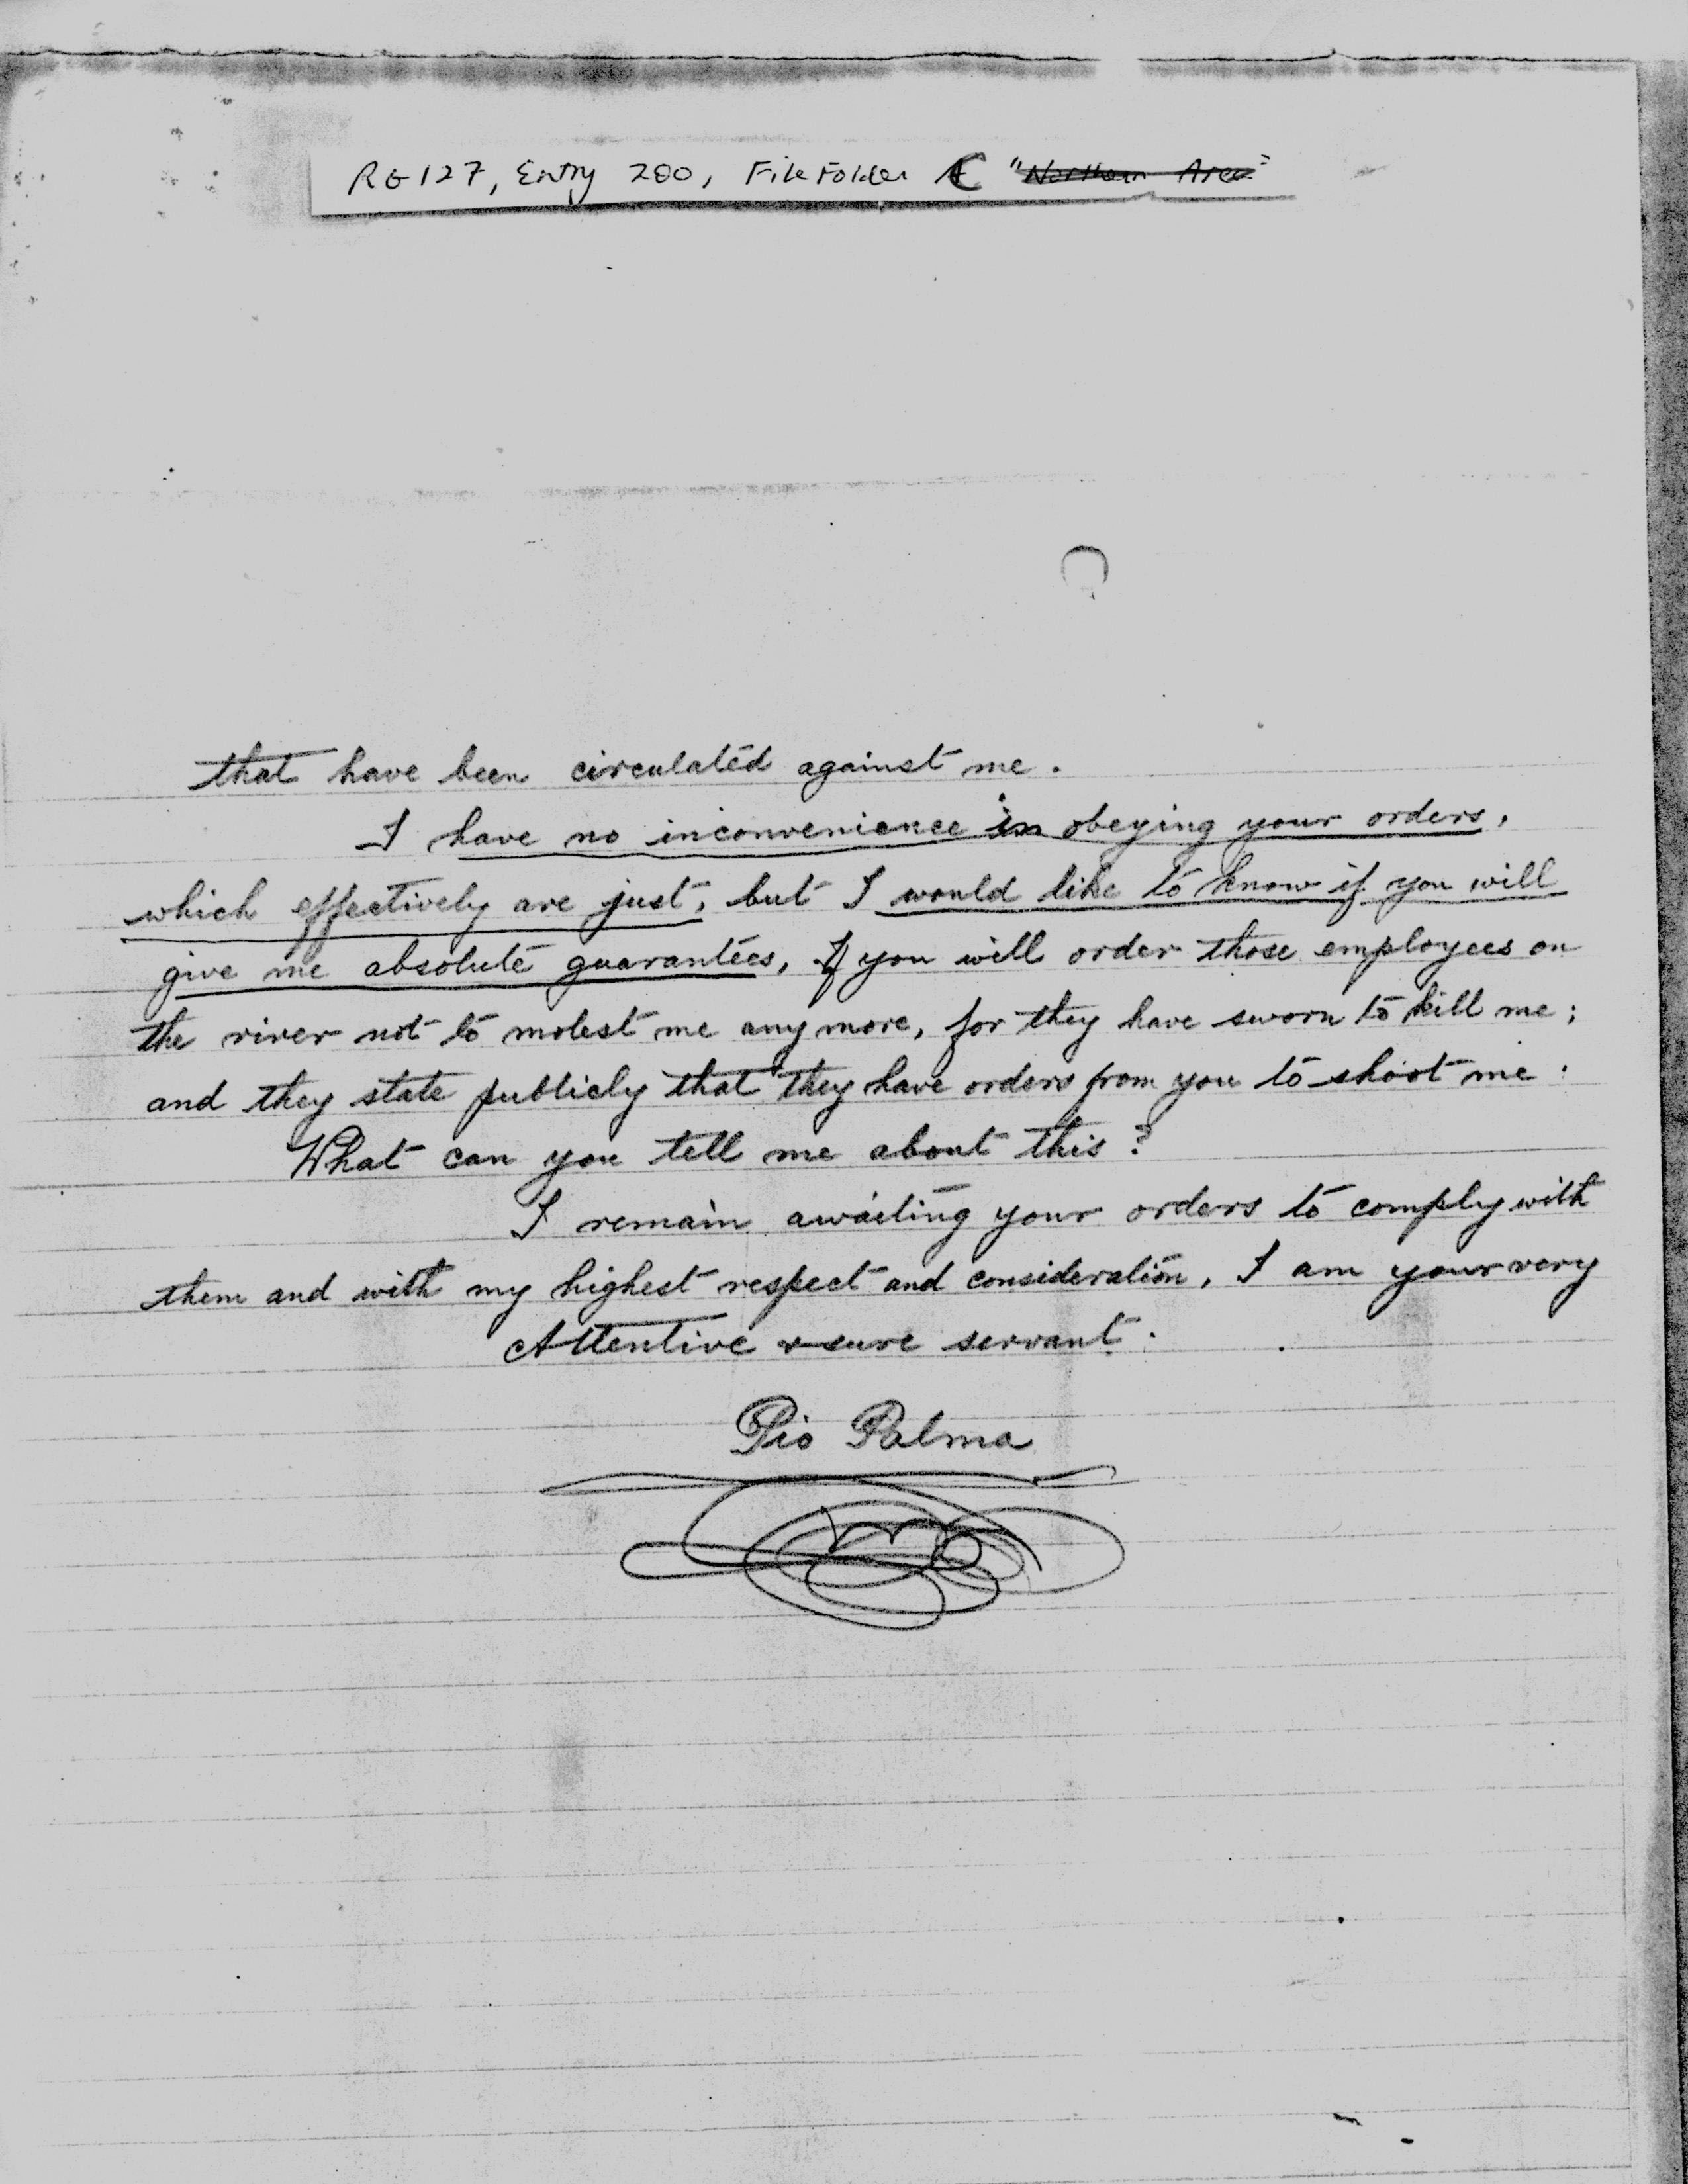 RG 127, Entry 200, File Folder C "Northern Area"
that have been circulated against me.
I have no inconvenience in obeying your orders,
which effectively are just, but I would like to know if you will
give me absolute guarantees, If you will order those employees on
the river not to molest me any more, for they have sworn to kill me;
and they state publicly that they have orders from you to shoot me.
What can you tell me about this?
I remain awaiting your orders to comply with
them and with my highest respect and consideration, I am your very
Attentive & sure servant.
Pio Palma